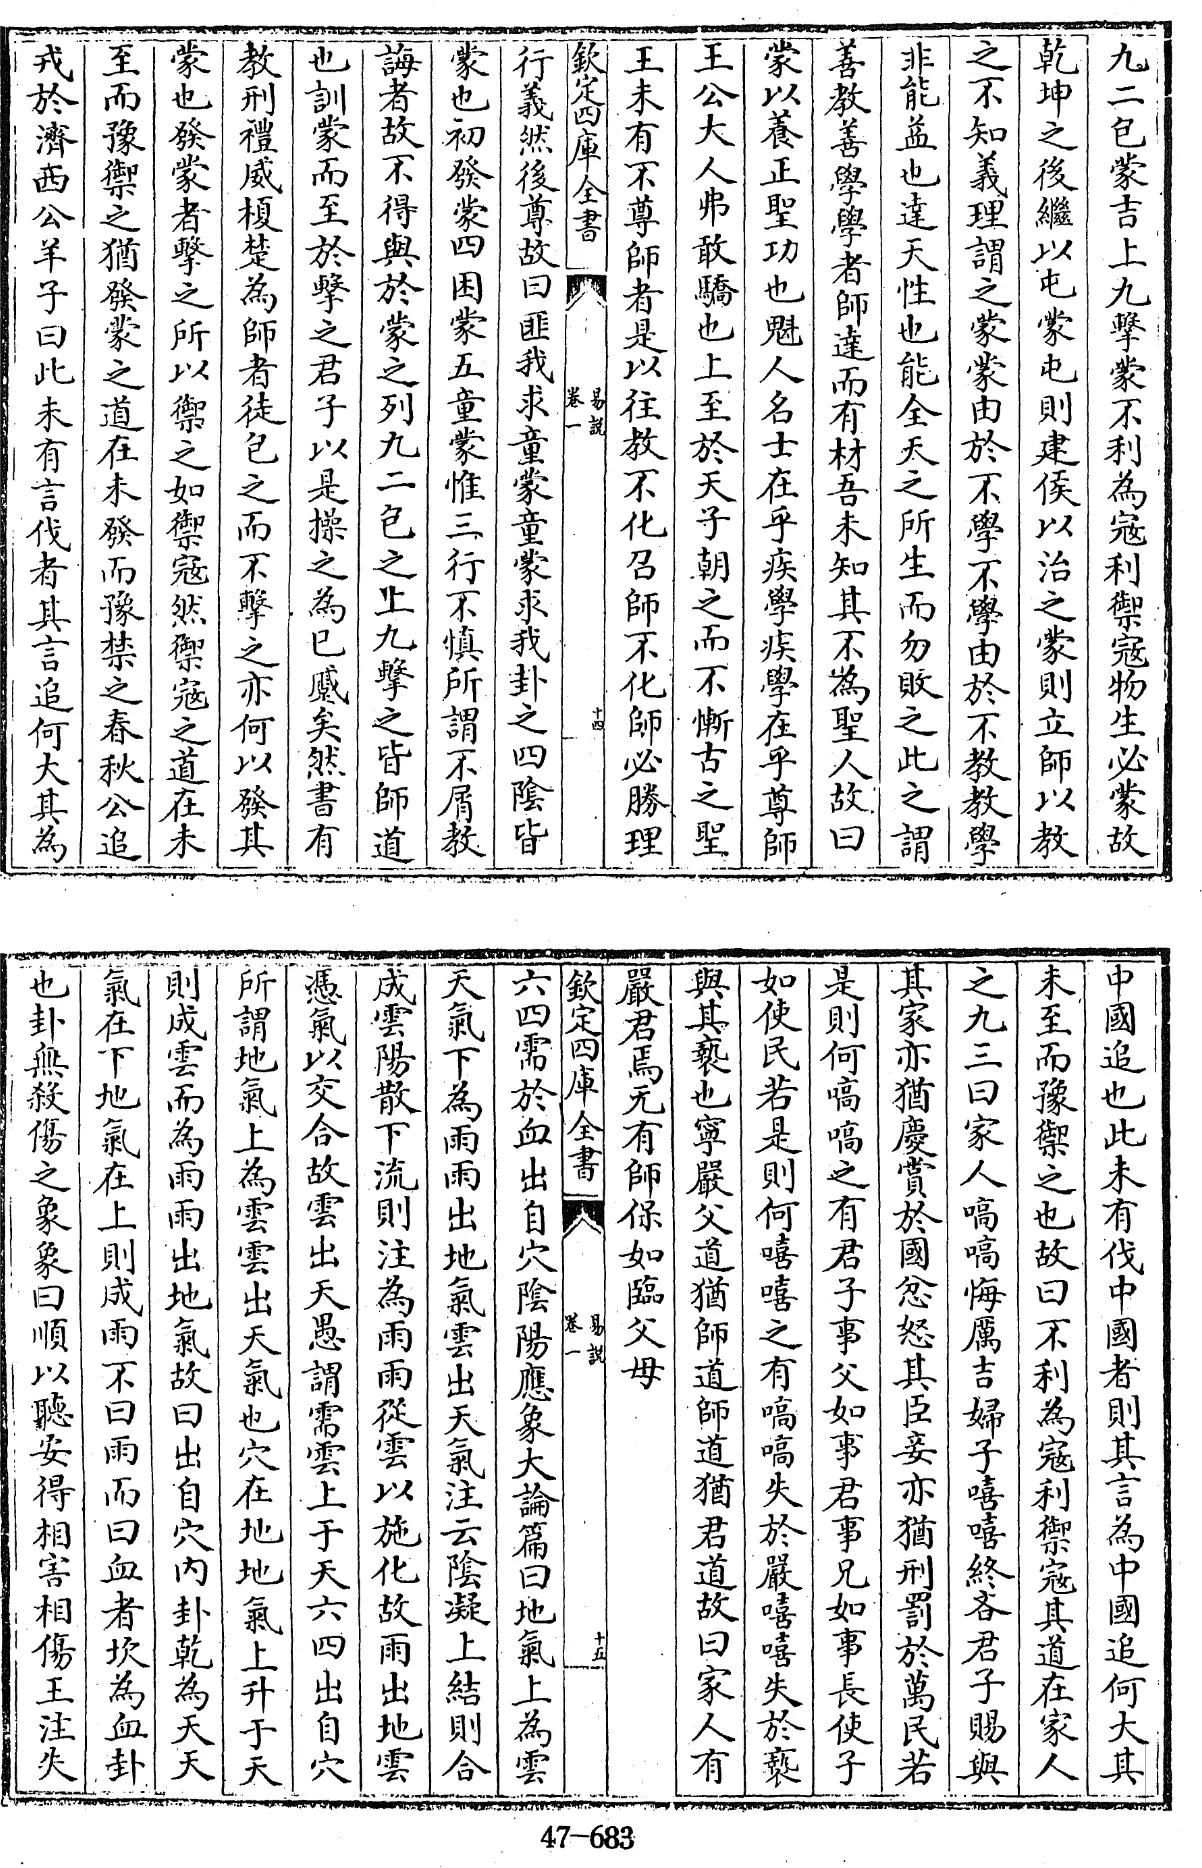 九二包蒙吉上九擊蒙不利為寇利禦寇物生必蒙故
乾坤之後繼以屯蒙屯則建侯以治之蒙則立師以教
之不知義理謂之蒙蒙由於不學不學由於不教教學
非能益也達天性也能全天之所生而勿敗之此之謂
善教善學學者師達而有材吾未知其不為聖人故曰
蒙以養正聖功也魁人名士在乎疾學疾學在乎尊師
王公大人弗敢驕也上至於天子朝之而不慚古之聖
王未有不尊師者是以往教不化召師不化師必勝理
欽定四庫全書
易說
卷一
十四
行義然後尊故曰匪我求童蒙童蒙求我卦之四陰皆
蒙也初發蒙四困蒙五童蒙惟三行不慎所謂不屑教
誨者故不得與於蒙之列九二包之上九擊之皆師道
也訓蒙而至於擊之君子以是操之為已蹙矣然書有
教刑禮威榎楚為師者徒包之而不擊之亦何以發其
蒙也發蒙者擊之所以禦之如禦寇然禦寇之道在未
至而豫禦之猶發蒙之道在未發而豫禁之春秋公追
戎於濟西公羊子曰此未有言伐者其言追何大其為
中國追也此未有伐中國者則其言為中國追何大其
未至而豫禦之也故曰不利為寇利禦寇其道在家人
之九三曰家人嗃嗃悔厲吉婦子嘻嘻終吝君子賜與
其家亦猶慶賞於國忿怒其臣妾亦猶刑罰於萬民若
是則何嗃嗃之有君子事父如事君事兄如事長使子
如使民若是則何嘻嘻之有嗃嗃失於嚴嘻嘻失於褻
與其褻也寧嚴父道猶師道師道猶君道故曰家人有
嚴君焉无有師保如臨父母
欽定四庫全書
易說
卷一
十五
六四需於血出自穴陰陽應象大論篇曰地氣上為雲
天氣下為雨雨出地氣雲出天氣注云陰凝上結則合
成雲陽散下流則注為雨雨從雲以施化故雨出地雲
憑氣以交合故雲出天愚謂需雲上于天六四出自穴
所謂地氣上為雲雲出天氣也穴在地地氣上升于天
則成雲而為雨雨出地氣故曰出自穴內卦乾為天天
氣在下地氣在上則成雨不曰雨而曰血者坎為血卦
也卦無殺傷之象象曰順以聽安得相害相傷王注失
47-683